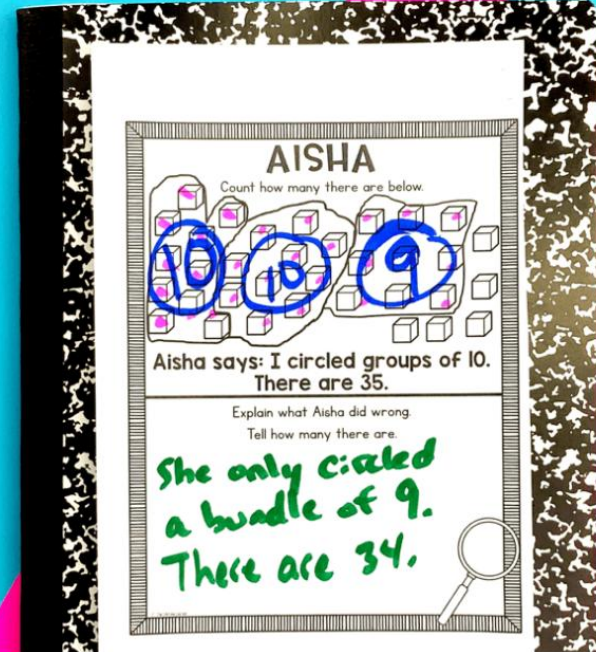 AISHA
Count how many there are below.
10 10 9
Aisha says: I circled groups of 10.
There are 35.
Explain what Aisha did wrong.
Tell how many there are.
She only circled
a bundle of 9.
There are 34.